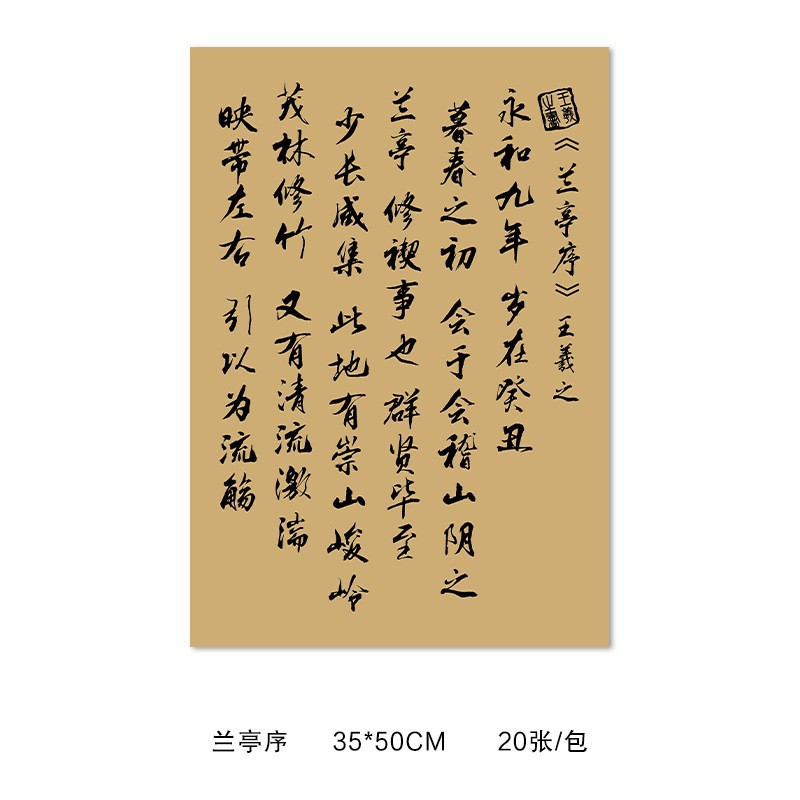 王羲之書
《兰亭序》王羲之
永和九年 岁在癸丑
暮春之初 会于会稽山阴之
兰亭 修禊事也 群贤毕至
少长咸集 此地有崇山峻岭
茂林修竹 又有清流激湍
映带左右 引以为流觞
兰亭序 35*50CM 20张/包